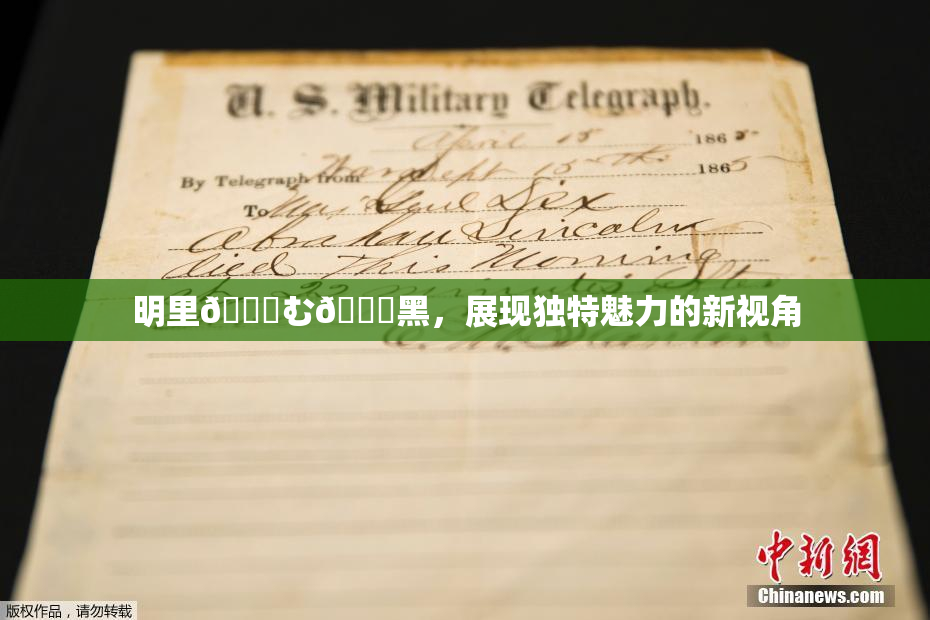 U. S. Military Telegraph.
April 15 1865.
By Telegraph from War Dept 15th 1865
To Maj Genl Dix
Abraham Lincoln
died This Morning
at 22 minutes after
明里ð	むð	黑，展现独特魅力的新视角
E. M. Stanton
中新网
Chinanews.com
版权作品，请勿转载